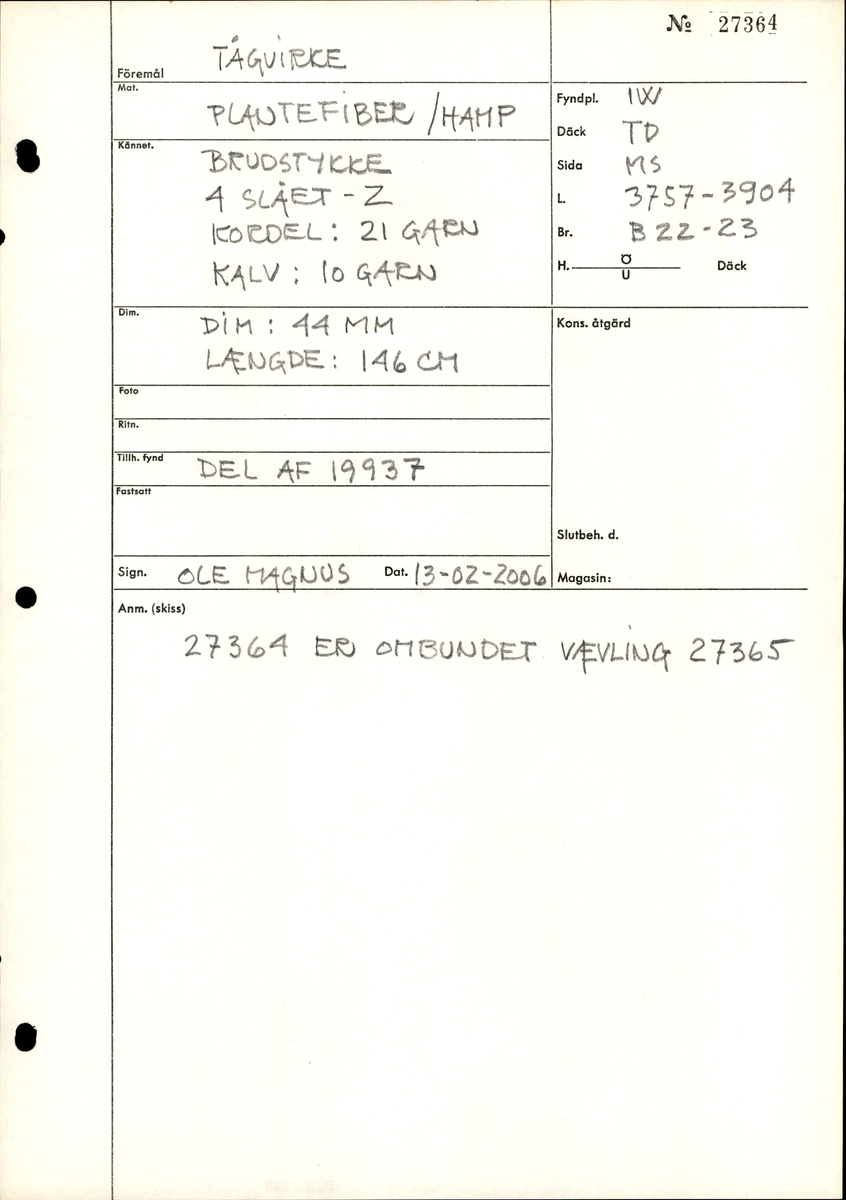 № 27364
Föremål TÅGVIRKE
Mat. PLANTEFIBER/HAMP
Kännet. BRUDSTYKKE
4 SLÅET - Z
KORDEL: 21 GARN
KALV: 10 GARN
Fyndpl. 1W
Däck TD
Sida MS
L. 3757-3904
Br. B 22-23
H. Ö U Däck
Dim. DIM: 44 MM
LÆNGDE: 146 CM
Kons. åtgärd
Foto
Ritn.
Tillh. fynd DEL AF 19937
Fastsatt
Slutbeh. d.
Sign. OLE MAGNUS Dat. 13-02-2006 Magasin:
Anm. (skiss)
27364 ER OMBUNDET VÆVLING 27365